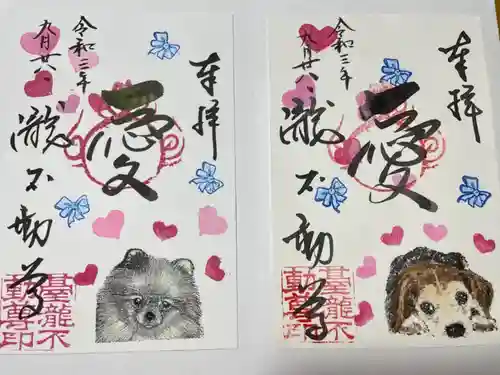 奉拝
愛
令和三年
九月廿八
瀧不動尊
龍不
動尊印
奉拝
愛
令和三年
九月廿八
瀧不動尊
龍不
動尊印